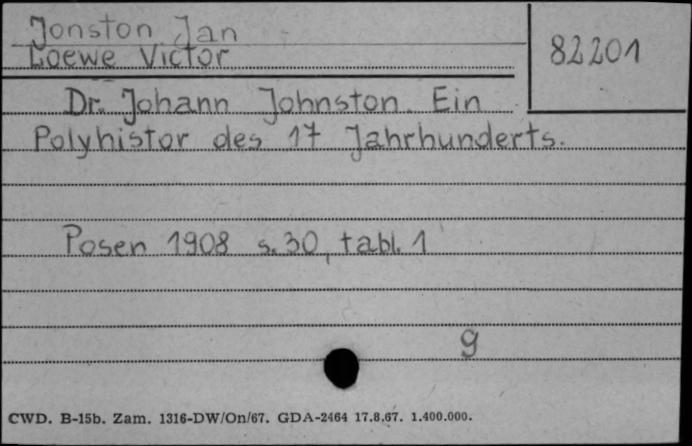 Jonston Jan
Loewe Victor
82201
Dr. Johann Johnston. Ein
Polyhistor des 17 Jahrhunderts.
Posen 1908 s. 30, tabl. 1
g
CWD. B-15b. Zam. 1316-DW/On/67. GDA-2464 17.8.67. 1.400.000.